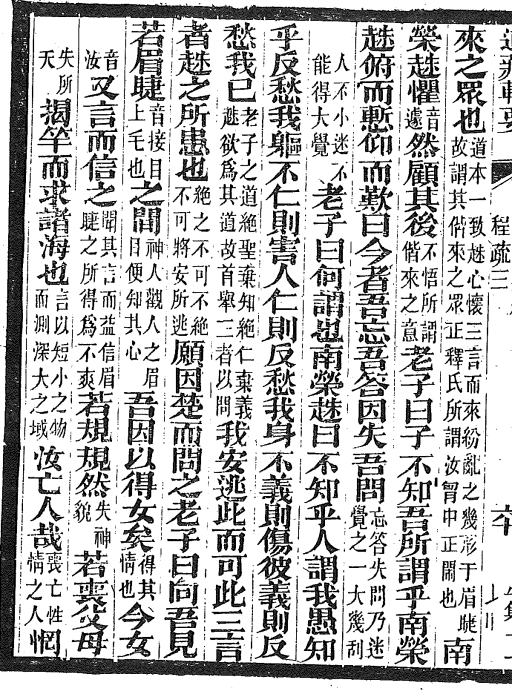 程疏三
來之眾也道本一致趎心懷三言而來紛亂之幾形于眉睫故謂其偕來之眾正釋氏所謂汝胷中正鬧也南
榮趎懼音遽然顧其後不悟所謂偕來之意老子曰子不知吾所謂乎南榮
趎俯而慙仰而歎曰今者吾忘吾答因失吾問忘答失問乃迷覺之一大幾刮
人不小迷不能得大覺老子曰何謂也南榮趎曰不知乎人謂我愚知
乎反愁我軀不仁則害人仁則反愁我身不義則傷彼義則反
愁我已老子之道絕聖棄知絕仁棄義趎欲爲其道故首舉二者以問我安逃此而可此三言
者趎之所患也絕之不可不絕不可將安所逃願因楚而問之老子曰向吾見
若眉睫音接目上毛也之間神人觀人之眉目便知其心吾因以得女矣得其情也今女
音汝又言而信之聞其言而益信眉睫之所得爲不爽若規規然失神貌若喪父母
失所天揭竿而求諸海也言以短小之物而測深大之域汝亡人哉喪亡性情之人惘